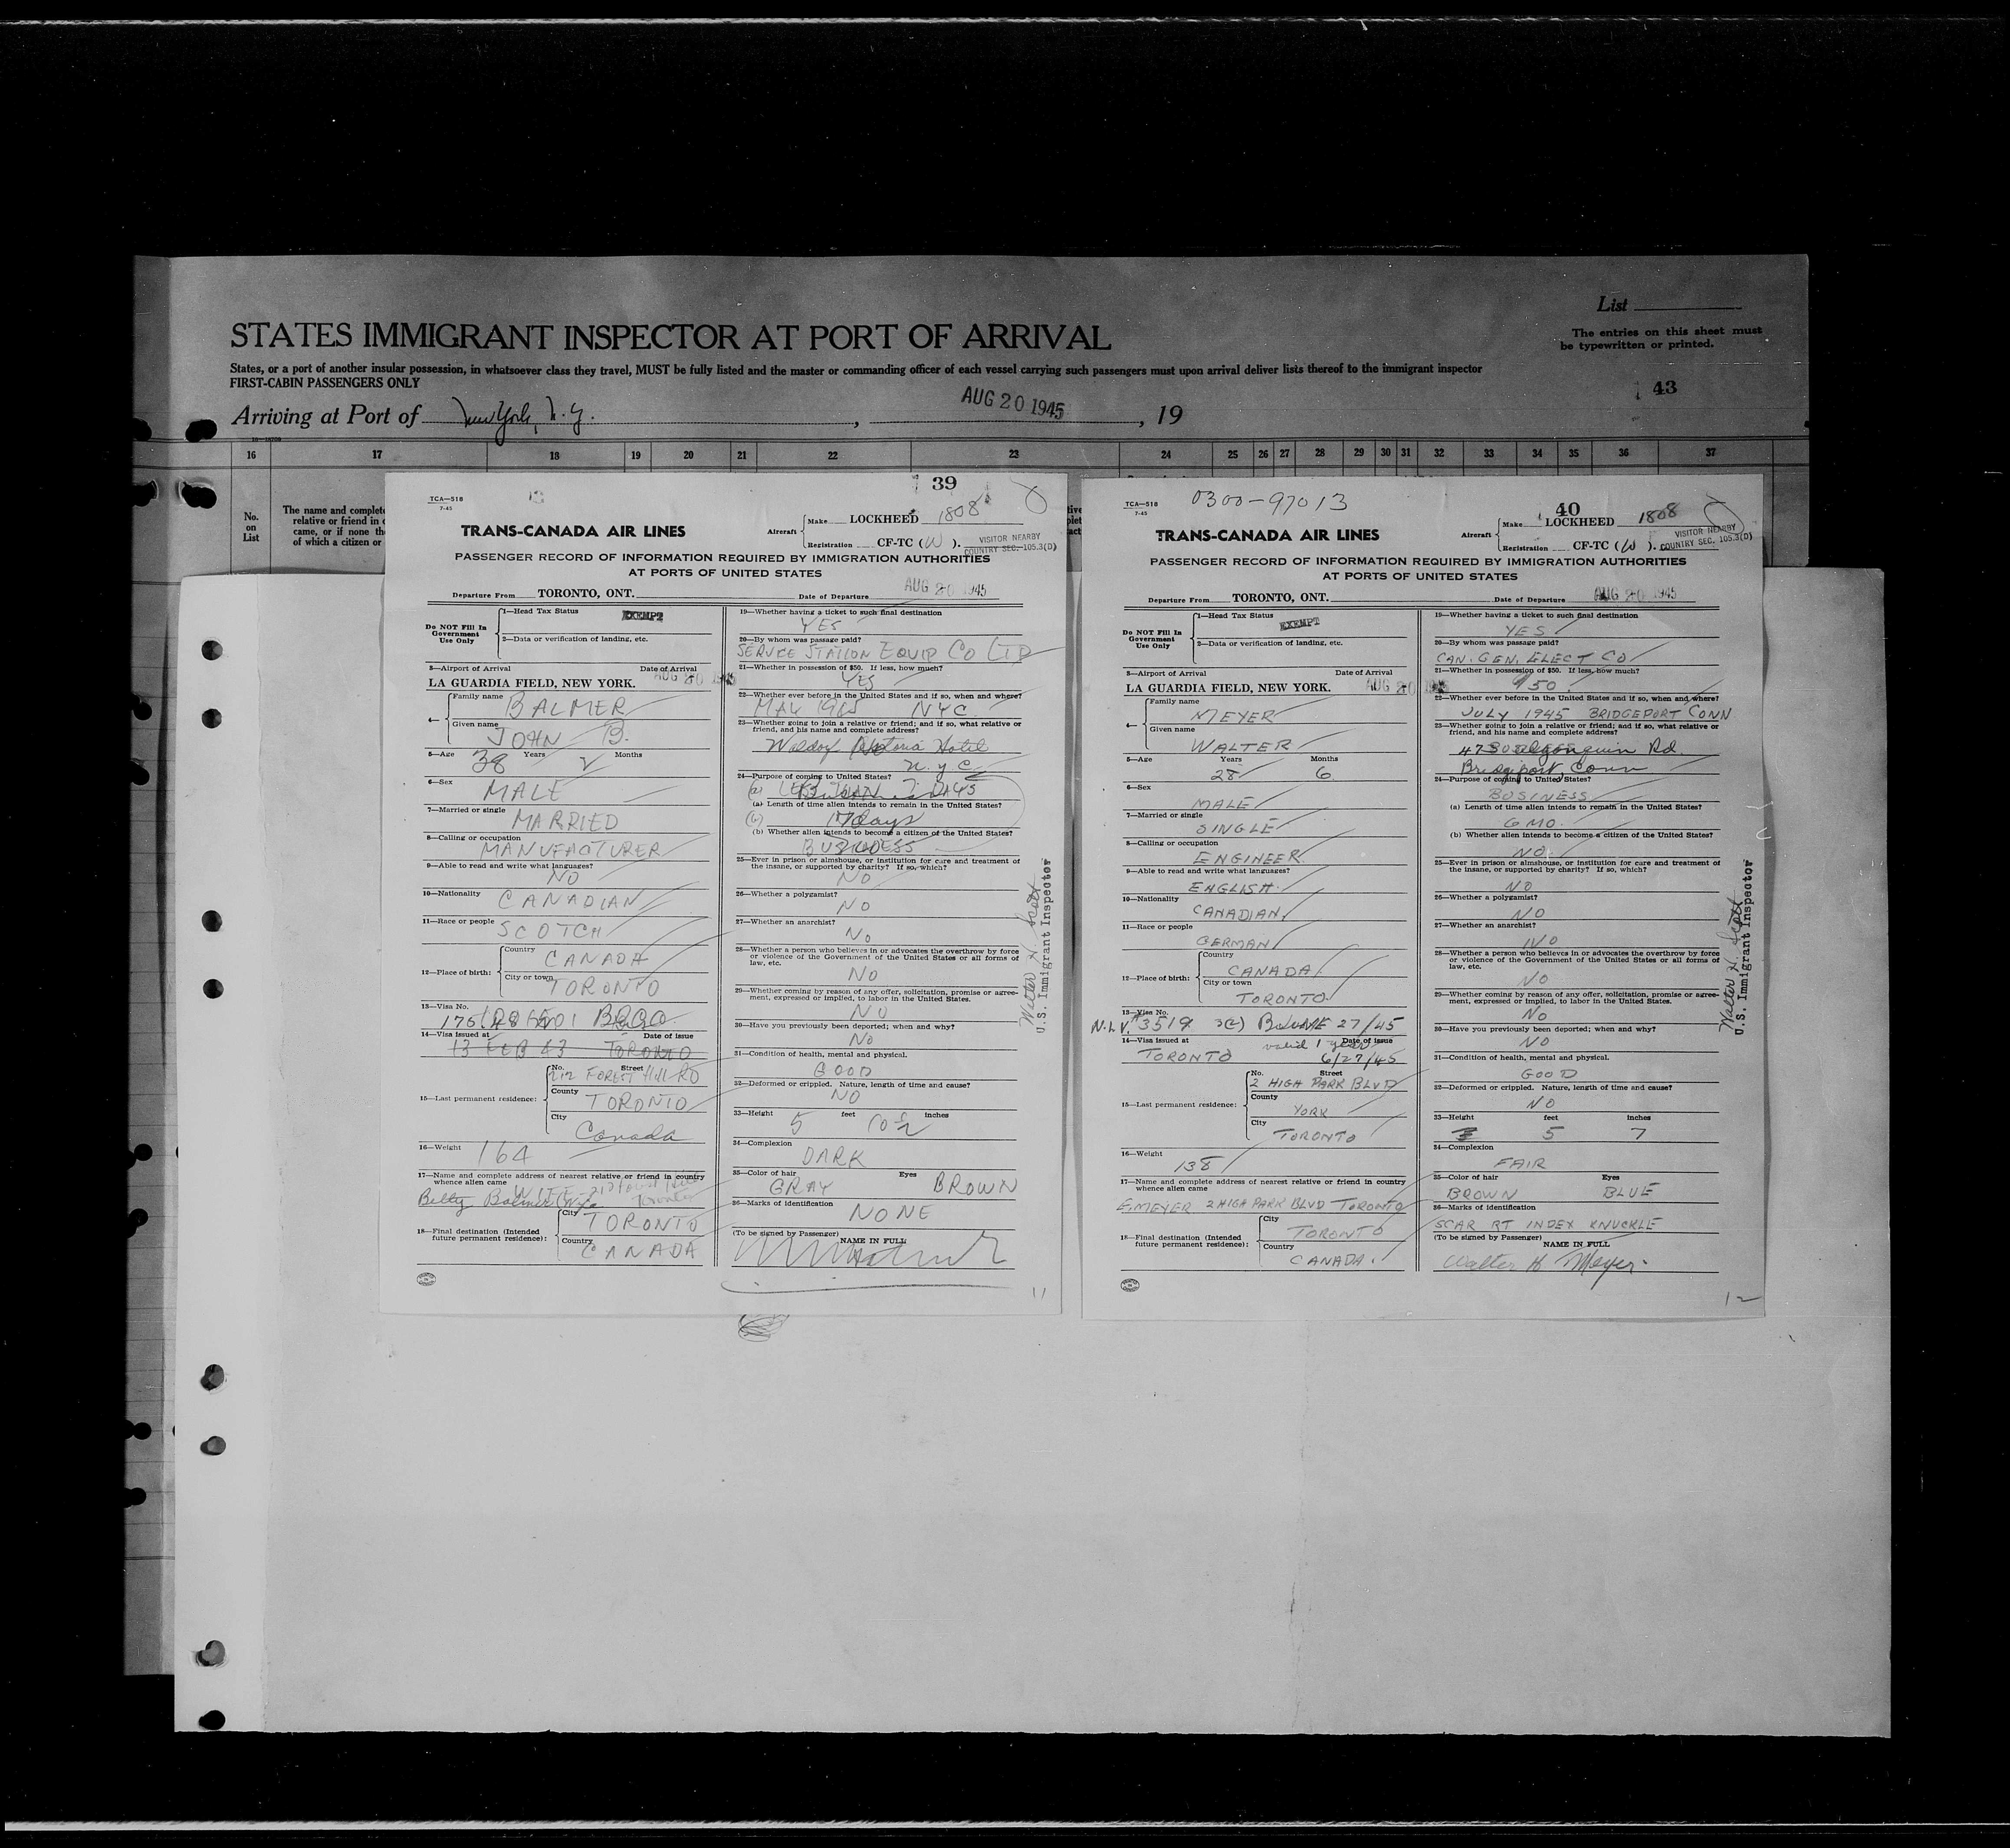 List
STATES IMMIGRANT INSPECTOR AT PORT OF ARRIVAL
The entries on this sheet must
be typewritten or printed.
States, or a port of another insular possession, in whatsoever class they travel, MUST be fully listed and the master or commanding officer of each vessel carrying such passengers must upon arrival deliver lists thereof to the immigrant inspector
FIRST-CABIN PASSENGERS ONLY
43
Arriving at Port of New York, N.Y., AUG 20 1945, 19
16 17 18 19 20 21 22 23 24 25 26 27 28 29 30 31 32 33 34 35 36 37
No.
on
List
The name and complete
relative or friend in
came, or if none
of which a citizen or
39
TCA—518
7-45
TRANS-CANADA AIR LINES
Aircraft Make LOCKHEED 1808
Registration CF-TC (W).
VISITOR NEARBY
COUNTRY SEC. 105.3(D)
PASSENGER RECORD OF INFORMATION REQUIRED BY IMMIGRATION AUTHORITIES
AT PORTS OF UNITED STATES
Departure From TORONTO, ONT. Date of Departure AUG 20 1945
Do NOT Fill In
Government
Use Only
1—Head Tax Status EXEMPT
2—Data or verification of landing, etc.
3—Airport of Arrival Date of Arrival
LA GUARDIA FIELD, NEW YORK. AUG 20 1945
4— Family name BALMER
Given name JOHN B.
5—Age 38 Years 2 Months
6—Sex MALE
7—Married or single MARRIED
8—Calling or occupation
MANUFACTURER
9—Able to read and write what languages?
NO
10—Nationality CANADIAN
11—Race or people SCOTCH
12—Place of birth: Country CANADA
City or town TORONTO
13—Visa No.
14—Visa issued at Date of issue
13 FEB 43 TORONTO
15—Last permanent residence: No. Street 212 FOREST HILL RD
County TORONTO
City Canada
16—Weight 164
17—Name and complete address of nearest relative or friend in country
whence alien came
Betty Balmer
18—Final destination (Intended
future permanent residence): City TORONTO
Country CANADA
19—Whether having a ticket to such final destination
YES
20—By whom was passage paid?
SERVICE STATION EQUIP CO LTD
21—Whether in possession of $50. If less, how much?
YES
22—Whether ever before in the United States and if so, when and where?
MAY NYC
23—Whether going to join a relative or friend; and if so, what relative or
friend, and his name and complete address?
Waldorf Astoria Hotel
N.Y.C.
24—Purpose of coming to United States?
(a) LESS THAN DAYS
(a) Length of time alien intends to remain in the United States?
(b) days
(b) Whether alien intends to become a citizen of the United States?
BUSINESS
25—Ever in prison or almshouse, or institution for care and treatment of
the insane, or supported by charity? If so, which?
NO
26—Whether a polygamist?
NO
27—Whether an anarchist?
NO
28—Whether a person who believes in or advocates the overthrow by force
or violence of the Government of the United States or all forms of
law, etc.
NO
29—Whether coming by reason of any offer, solicitation, promise or agree-
ment, expressed or implied, to labor in the United States.
NO
30—Have you previously been deported; when and why?
NO
31—Condition of health, mental and physical.
GOOD
32—Deformed or crippled. Nature, length of time and cause?
NO
33—Height 5 feet 10½ inches
34—Complexion
DARK
35—Color of hair Eyes
GRAY BROWN
36—Marks of identification
NONE
(To be signed by Passenger) NAME IN FULL
Walter H. Scott
U.S. Immigrant Inspector
11
TCA—518
7-45
0300-97013
40
TRANS-CANADA AIR LINES
Aircraft Make LOCKHEED 1808
Registration CF-TC (W).
VISITOR NEARBY
COUNTRY SEC. 105.3(D)
PASSENGER RECORD OF INFORMATION REQUIRED BY IMMIGRATION AUTHORITIES
AT PORTS OF UNITED STATES
Departure From TORONTO, ONT. Date of Departure AUG 20 1945
Do NOT Fill In
Government
Use Only
1—Head Tax Status EXEMPT
2—Data or verification of landing, etc.
3—Airport of Arrival Date of Arrival
LA GUARDIA FIELD, NEW YORK. AUG 20
4— Family name MEYER
Given name WALTER
5—Age Years 28 Months 6
6—Sex MALE
7—Married or single SINGLE
8—Calling or occupation
ENGINEER
9—Able to read and write what languages?
ENGLISH
10—Nationality
CANADIAN
11—Race or people
GERMAN
12—Place of birth: Country CANADA
City or town
TORONTO
13—Visa No.
N.I.V. #3519 3(2) 27/45
valid 1 year
14—Visa issued at Date of issue
TORONTO 6/27/45
15—Last permanent residence: No. Street
2 HIGH PARK BLVD
County
YORK
City
TORONTO
16—Weight
138
17—Name and complete address of nearest relative or friend in country
whence alien came
E. MEYER 2 HIGH PARK BLVD TORONTO
18—Final destination (Intended
future permanent residence): City TORONTO
Country CANADA.
19—Whether having a ticket to such final destination
YES
20—By whom was passage paid?
CAN. GEN. ELECT CO
21—Whether in possession of $50. If less, how much?
50
22—Whether ever before in the United States and if so, when and where?
JULY 1945 BRIDGEPORT CONN
23—Whether going to join a relative or friend; and if so, what relative or
friend, and his name and complete address?
Algonquin Rd.
Bridgeport, Conn
24—Purpose of coming to United States?
BUSINESS
(a) Length of time alien intends to remain in the United States?
6 MO.
(b) Whether alien intends to become a citizen of the United States?
NO.
25—Ever in prison or almshouse, or institution for care and treatment of
the insane, or supported by charity? If so, which?
NO
26—Whether a polygamist?
NO
27—Whether an anarchist?
NO
28—Whether a person who believes in or advocates the overthrow by force
or violence of the Government of the United States or all forms of
law, etc.
NO
29—Whether coming by reason of any offer, solicitation, promise or agree-
ment, expressed or implied, to labor in the United States.
NO
30—Have you previously been deported; when and why?
NO
31—Condition of health, mental and physical.
GOOD
32—Deformed or crippled. Nature, length of time and cause?
NO
33—Height feet inches
5 7
34—Complexion
FAIR
35—Color of hair Eyes
BROWN BLUE
36—Marks of identification
SCAR RT INDEX KNUCKLE
(To be signed by Passenger) NAME IN FULL
Walter H Meyer.
Walter H. Scott
U.S. Immigrant Inspector
12